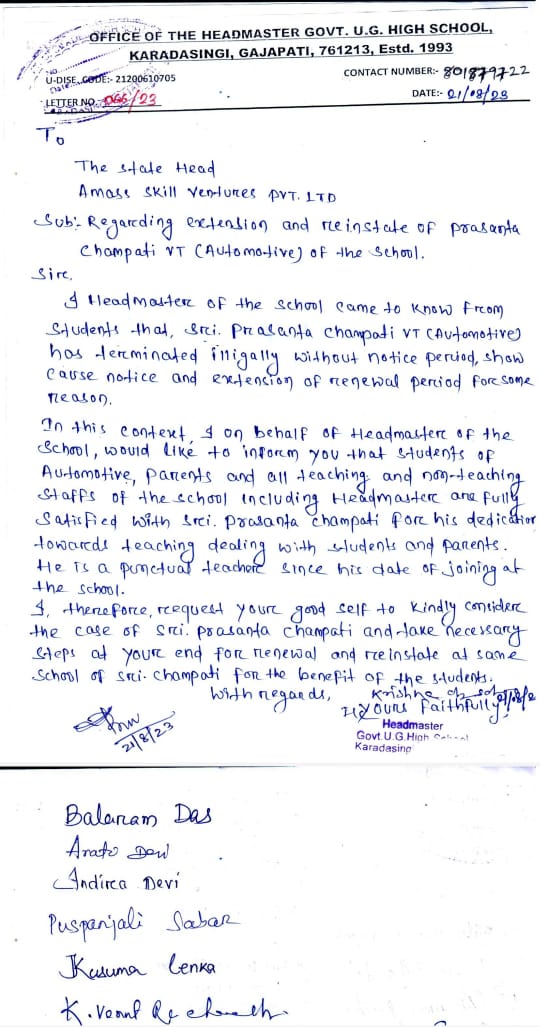 OFFICE OF THE HEADMASTER GOVT. U.G. HIGH SCHOOL,
KARADASINGI, GAJAPATI, 761213, Estd. 1993
U-DISE. CODE:- 21200610705
CONTACT NUMBER:- 801879722
LETTER NO. 066/23
DATE:- 21/08/23
To
The State Head
Amass Skill Ventures PVT. LTD
Sub:- Regarding extension and reinstate of Prasanta
Champati VT (Automotive) of the School.
Sir,
I Headmaster of the school came to know from
Students that, Sri. Prasanta Champati VT (Automotive)
has terminated illigally without notice period, show
cause notice and extension of renewal period for some
reason.
In this context, I on behalf of Headmaster of the
School, would like to inform you that students of
Automotive, parents and all teaching and non-teaching
staffs of the school including Headmaster are fully
Satisfied with Sri. Prasanta Champati for his dedication
towards teaching dealing with students and parents.
He is a punctual teacher since his date of joining at
the school.
I, therefore, request your good self to kindly consider
the case of Sri. Prasanta Champati and take necessary
steps at your end for renewal and reinstate at same
School of Sri. Champati for the benefit of the students.
With regards,
Krishna
Yours Faithfully,
21/8/23
Headmaster
Govt. U.G. High School
Karadasing
Balaram Das
Devi
Indira Devi
Puspanjali Sabar
Kusuma Lenka
K.